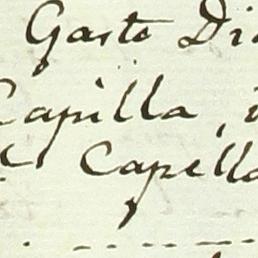 Gasto Di
Capilla,
Capella